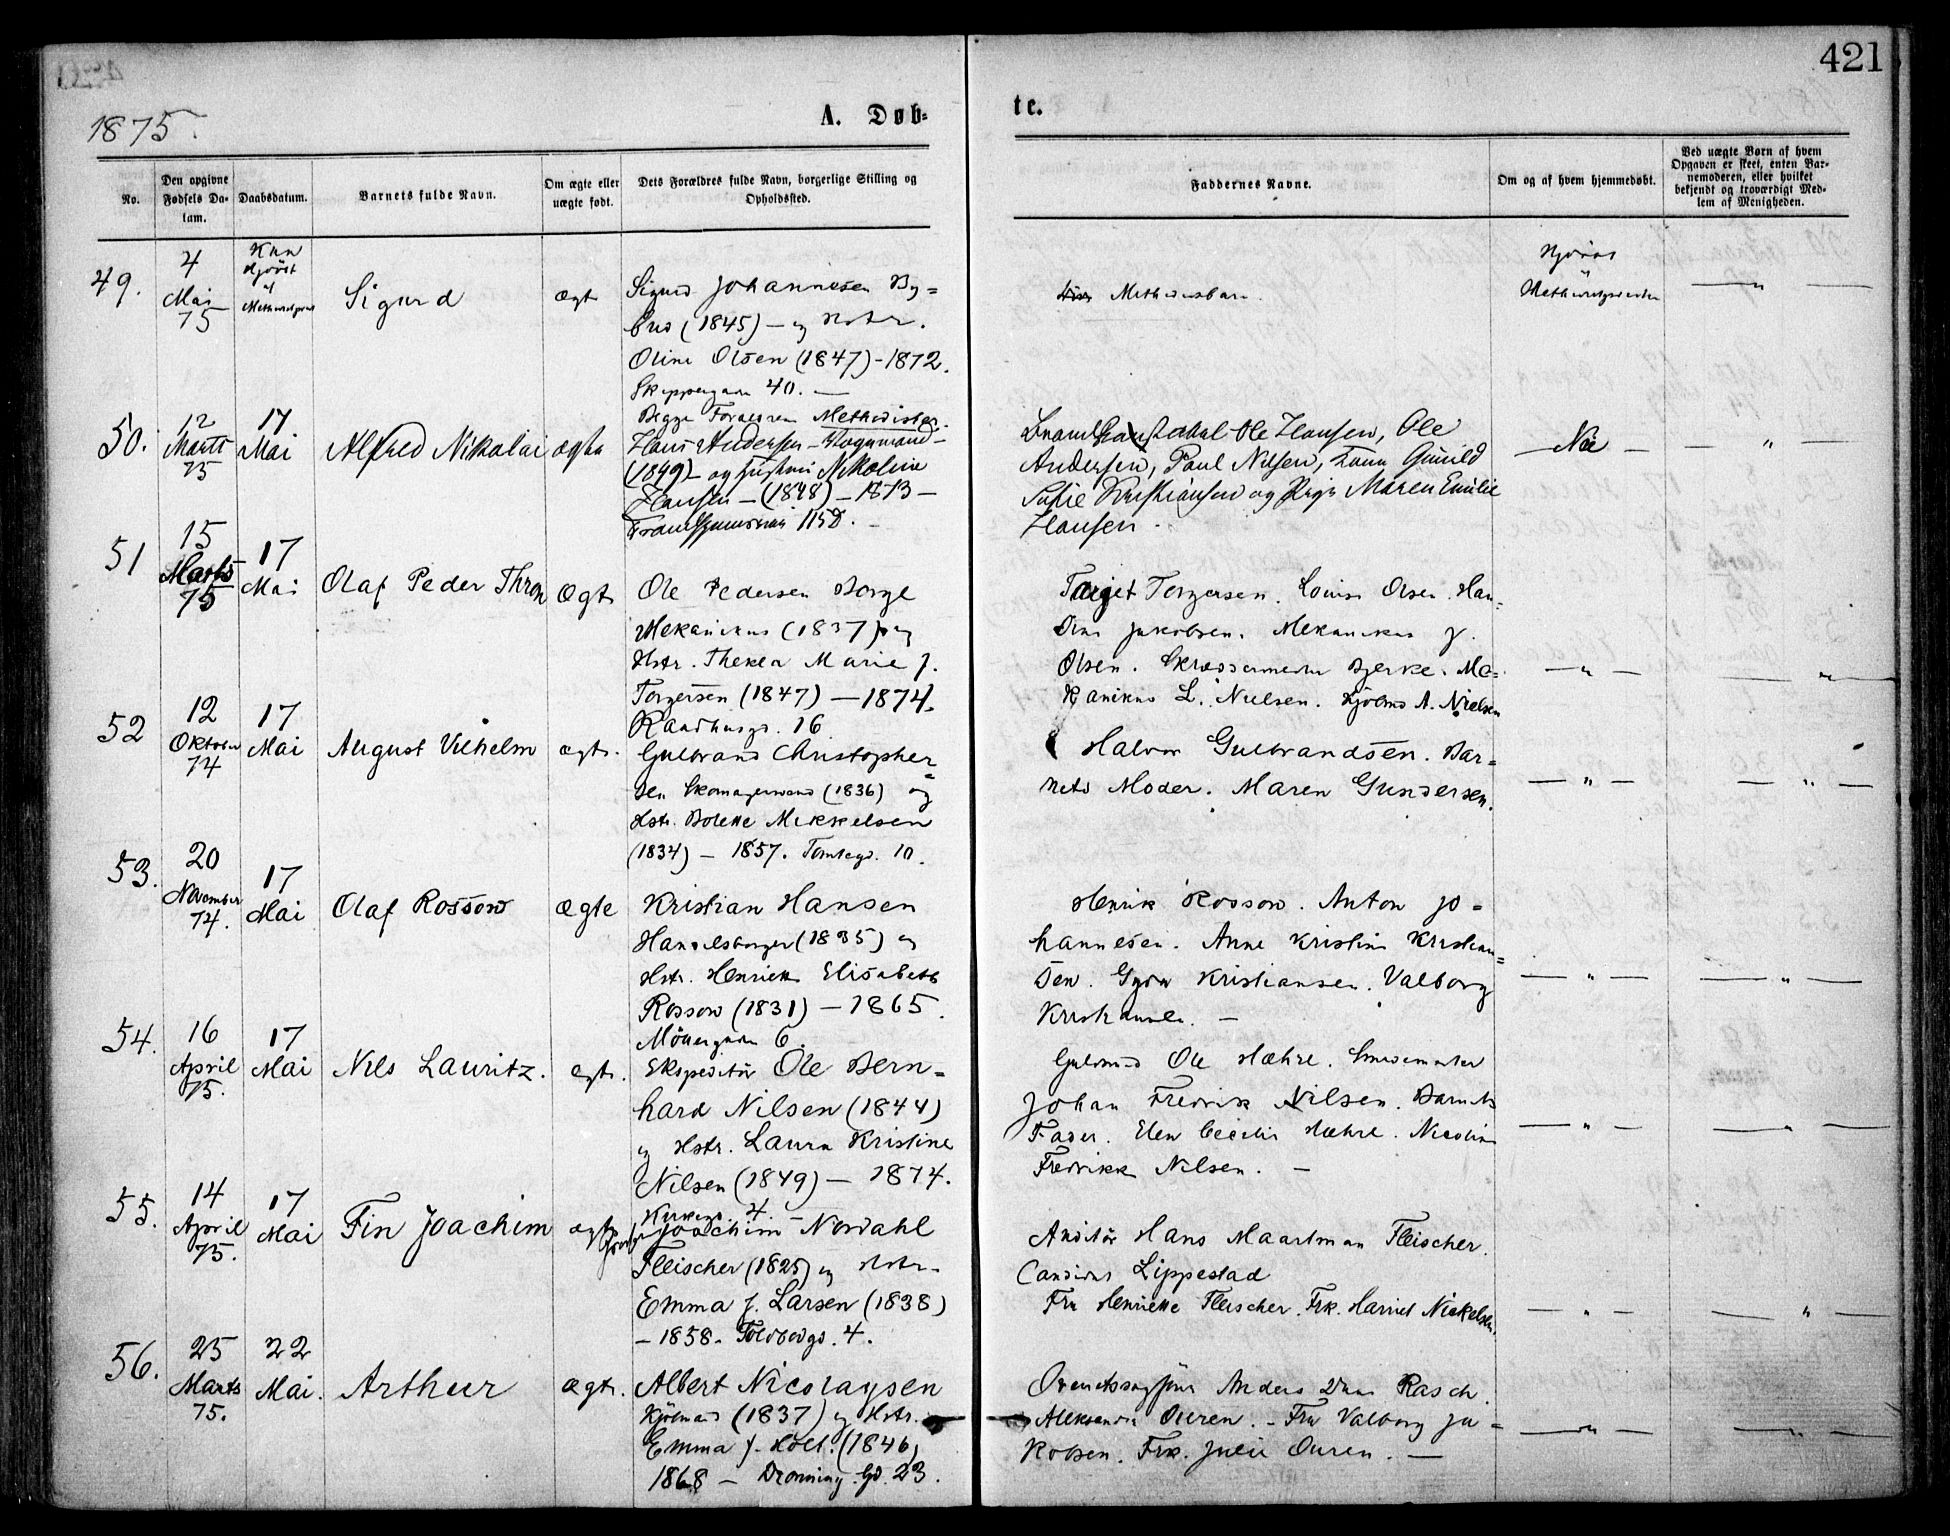 421
1875.
A. Døb-
te.
No.
Den opgivne Fødsels Da-
tum.
Daabsdatum.
Barnets fulde Navn.
Om ægte eller
uægte født.
Dets Forældres fulde Navn, borgerlige Stilling og
Opholdssted.
Faddernes Navne.
Om og af hvem hjemmedøbt.
Ved uægte Børn af hvem
Opgaven er skeet, enten Bar-
nemoderen, eller hvilket
bekjendt og troværdigt Med-
lem af Menigheden.
49.
4
Mai
75
Sigurd
ægte
Sigurd Johannesen
(1845) - og Hstr.
Oline Olsen (1847) - 1872.
40. -
Begge Forældren Methodister.
50.
12
Marts
75
17
Mai
Alfred Nikolai
ægte
Hans Andersen -
(1849) - og Hustru Nikoline
Hansen - (1848) - 1873 -
115 D. -
Ole Hansen, Ole
Andersen, Paul Nilsen, Gunild
Sofie Kristiansen og Pige Maren Emilie
Hansen -
Nei
51
15
Marts
75
17
Mai
Olaf Peder Thron
Ægte
Ole Pedersen Borge
Mekanikus (1837) og
Hstr. Thekla Marie f.
Torgersen (1847) - 1874.
Raadhusgd. 16
Torgersen. Louise Olsen. Han-
Jakobsen. Mekanikus J.
Olsen. Skræddermester Bjerke. Me-
kanikus L. Nielsen. A. Nielsen
52
12
Oktober
74
17
Mai
August Vilhelm
ægte.
Gulbrand Christopher-
sen Skomagersvend (1836) og
Hstr. Bolette Mikkelsen
(1834) - 1857. Tomtegd. 10.
Halvor Gulbrandsen. Bar-
nets Moder. Maren Gundersen.
53.
20
November
74.
17
Mai
Olaf Rossow
ægte
Kristian Hansen
Handelsborger (1835) og
Hstr. Henriette Elisabeth
Rossow (1831) - 1865.
Möllergaden 6.
Henrik Rossow. Anton Jo-
hannesen. Anne Kristine Kristian-
sen. Gyda Kristiansen. Valborg
Kristiansen. -
54.
16
April
75.
17
Mai
Nils Lauritz.
ægte.
Ekspeditör Ole Bern-
hard Nilsen (1844)
og Hstr. Laura Kristine
Nilsen (1849) - 1874.
Kirkegd. 4.
Ole Mæhre.
Johan Fredrik Nilsen. Barnets
Fader. Elen Cecilie Mæhre. Nicoline
Fredrikke Nilsen. -
55.
14
April
75.
17
Mai
Fin Joachim
ægte
Joachim Nordahl
Fleischer (1825) og Hstr.
Emma f. Larsen (1838)
- 1858. Toldbodgd. 4.
Auditör Hans Maartman Fleischer.
Lippestad
Fru Henriette Fleischer. Frk. Harriet Nickelsen.
56.
25
Marts
75.
22
Mai.
Arthur
ægte.
Albert Nicolaysen
Kjöbmand (1837) og Hstr.
Emma f. Holt. (1846)
1868 - Dronning. Gd. 23.
Overretssagförer Anders Rasch
Aleksander Ouren. - Fru Valborg Ja-
kobsen. Frk. Julie Ouren. -